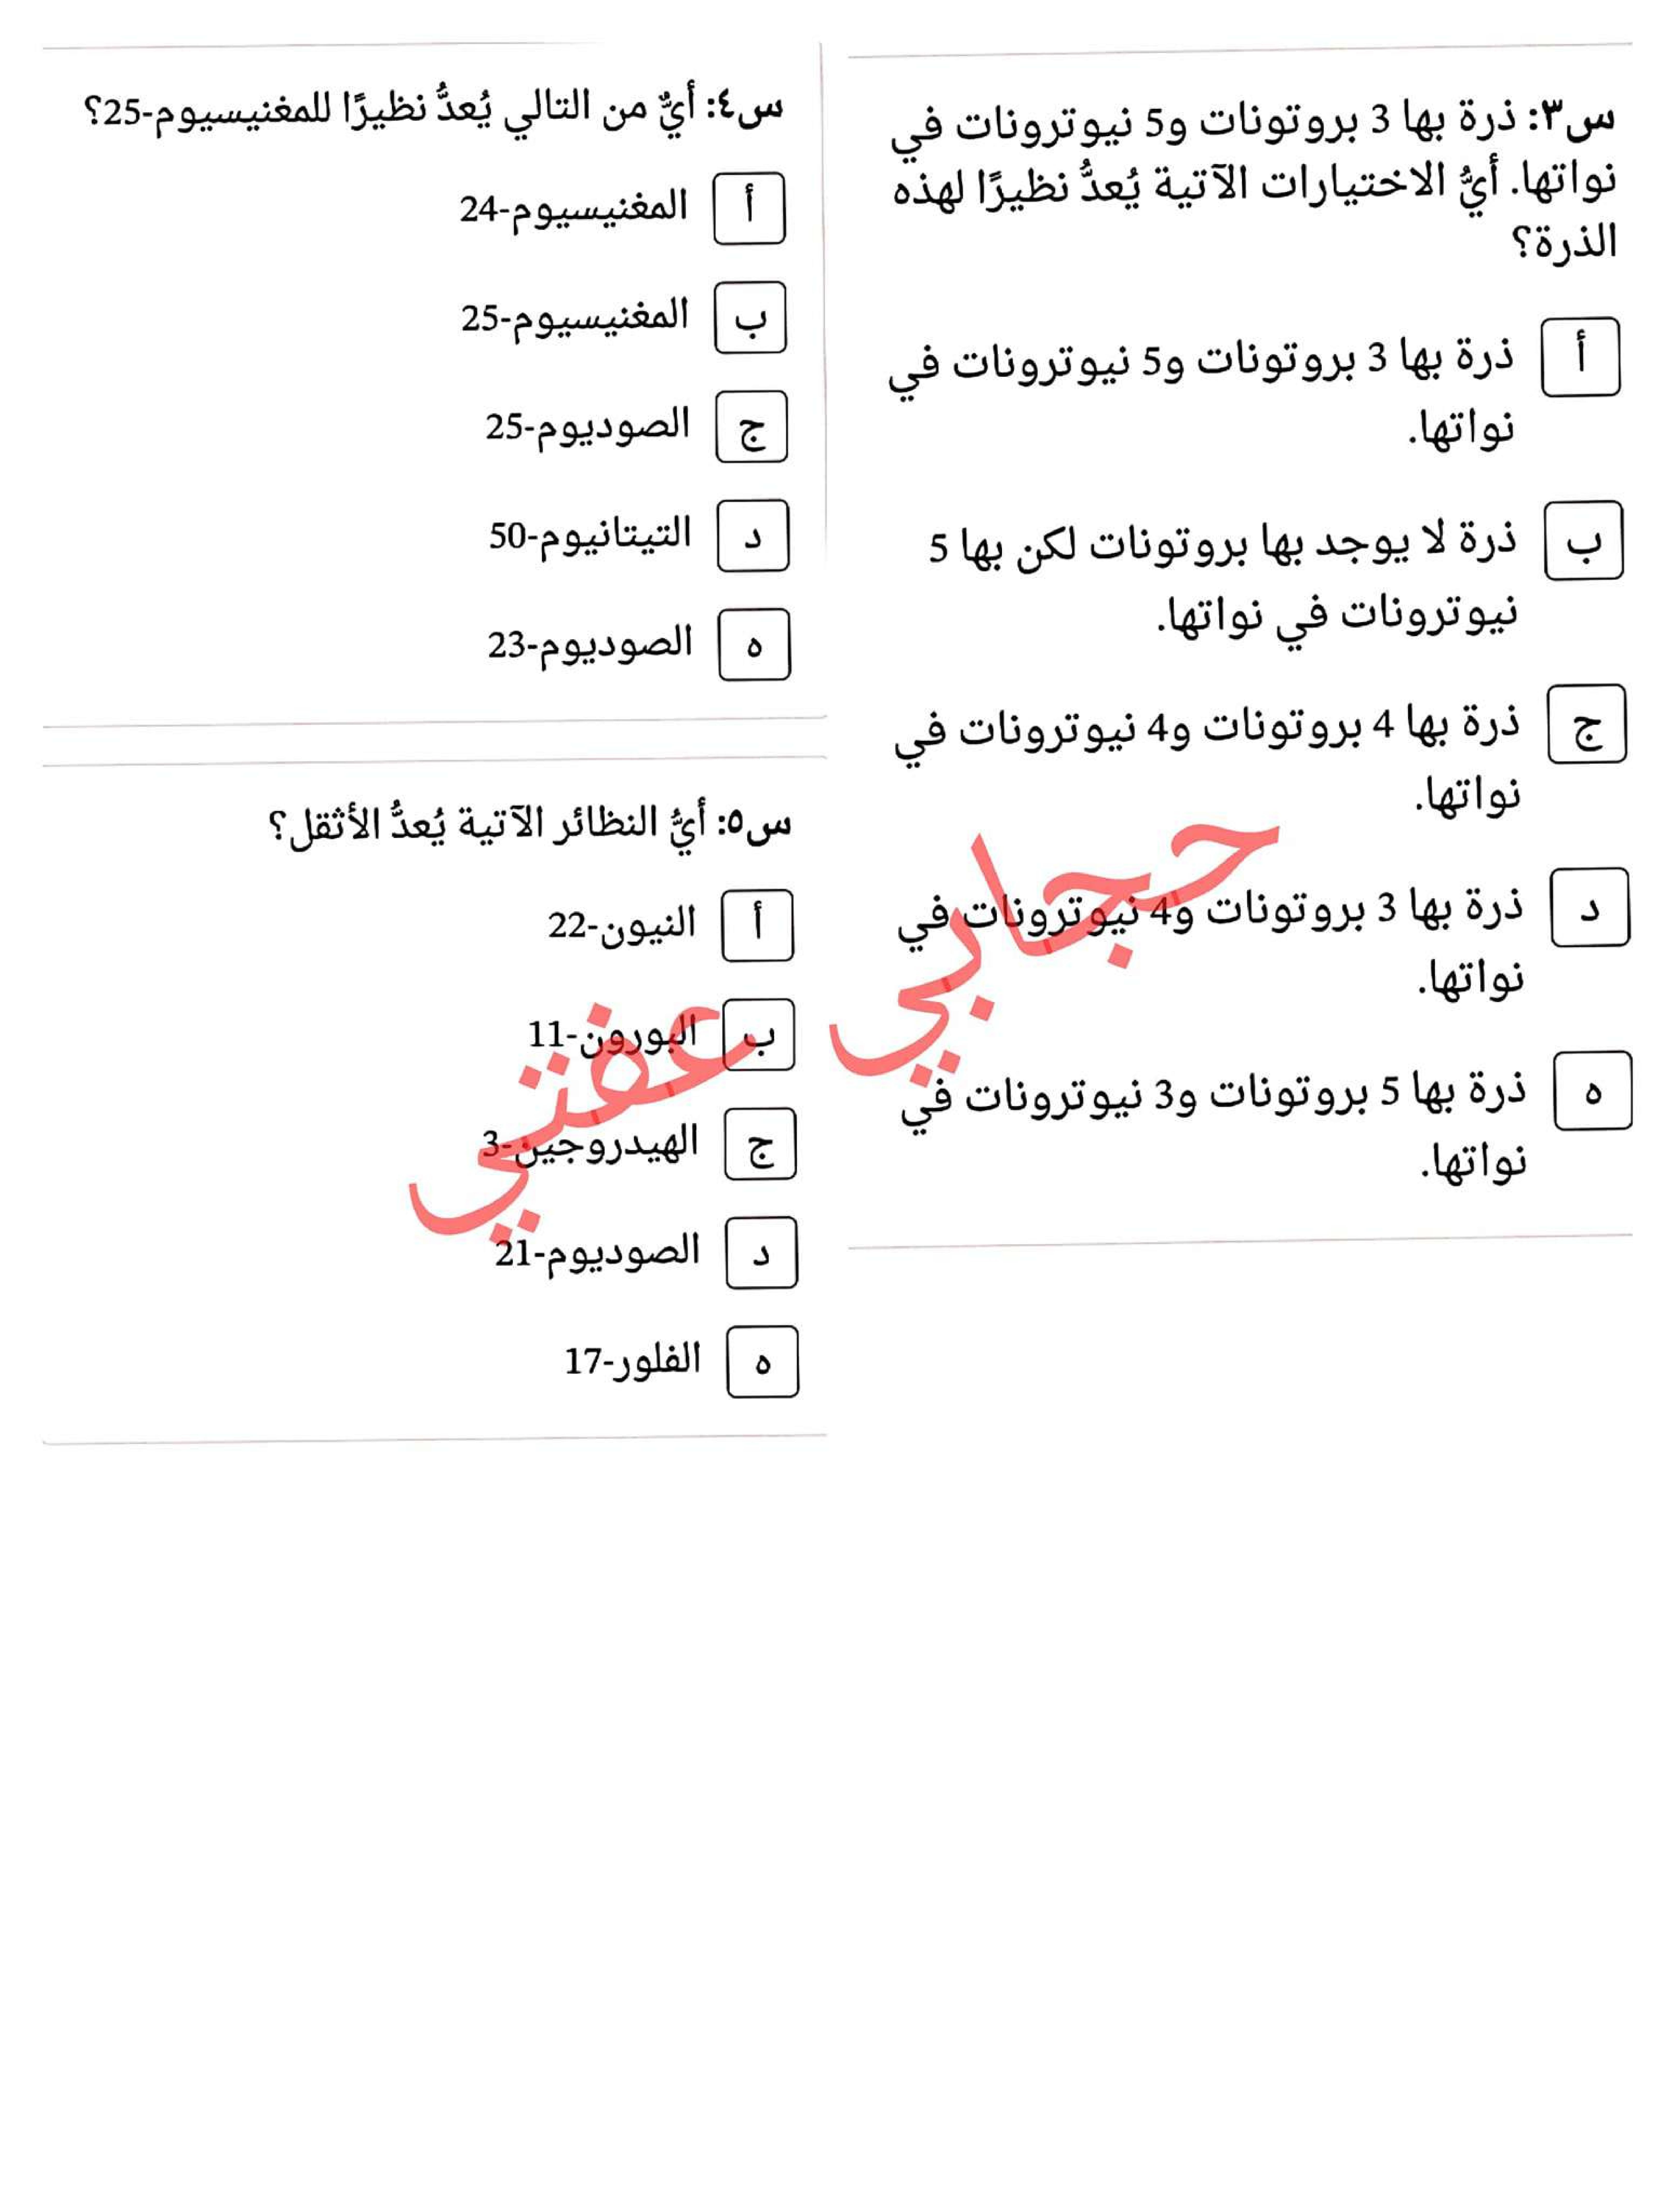 س٣: ذرة بها 3 بروتونات و5 نيوترونات في
نواتها. أيُّ الاختيارات الآتية يُعدُّ نظيرًا لهذه
الذرة؟
أ ذرة بها 3 بروتونات و5 نيوترونات في
نواتها.
ب ذرة لا يوجد بها بروتونات لكن بها 5
نيوترونات في نواتها.
ج ذرة بها 4 بروتونات و4 نيوترونات في
نواتها.
د ذرة بها 3 بروتونات و4 نيوترونات في
نواتها.
ه ذرة بها 5 بروتونات و3 نيوترونات في
نواتها.
س٤: أيٌّ من التالي يُعدُّ نظيرًا للمغنيسيوم-25؟
أ المغنيسيوم-24
ب المغنيسيوم-25
ج الصوديوم-25
د التيتانيوم-50
ه الصوديوم-23
س٥: أيُّ النظائر الآتية يُعدُّ الأثقل؟
أ النيون-22
ب البورون-11
ج الهيدروجين-3
د الصوديوم-21
ه الفلور-17
حجابي عفتي